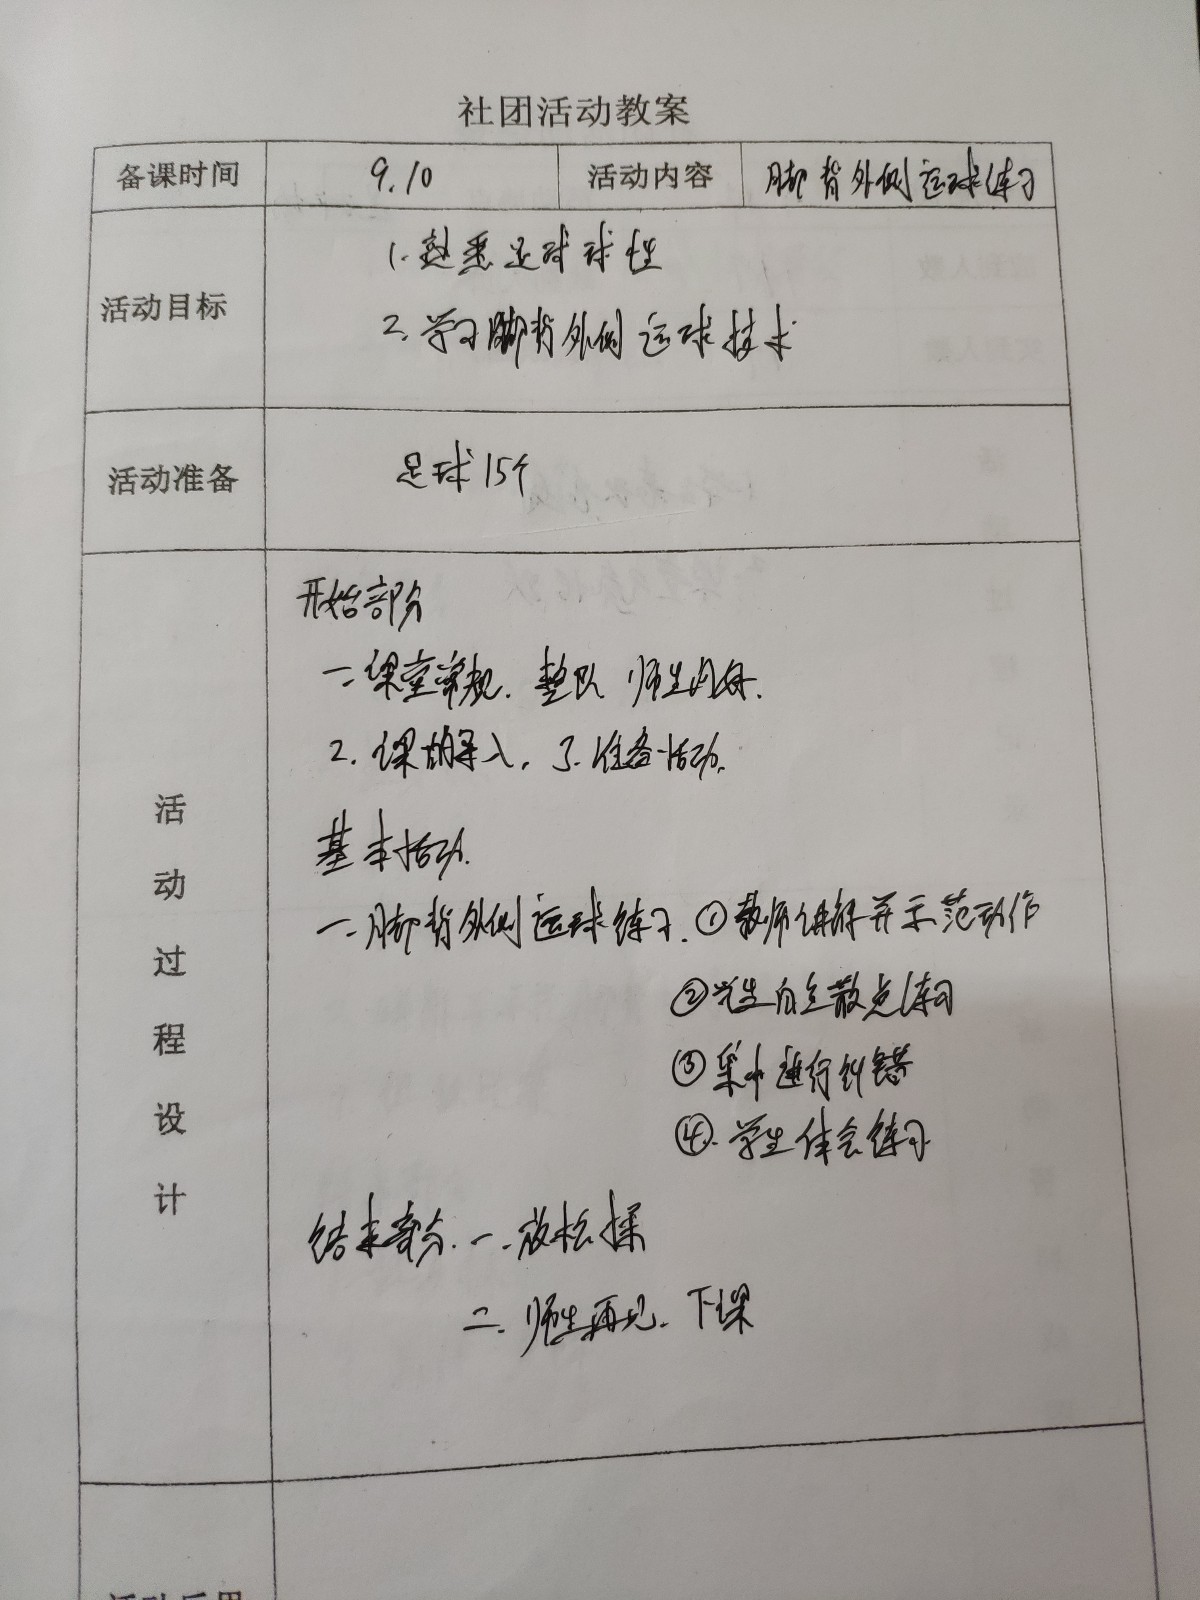 社团活动教案
备课时间 9.10 活动内容 脚背外侧运球练习
活动目标
1. 熟悉足球球性
2. 学习脚背外侧运球技术
活动准备 足球15个
活动过程设计
开始部分
一. 课堂常规. 整队 师生问好.
2. 课前导入. 3. 准备活动.
基本活动.
一. 脚背外侧运球练习. ①教师讲解并示范动作
②学生自主散点练习
③集中进行纠错
④. 学生体会练习
结束部分. 一. 放松操
二. 师生再见. 下课